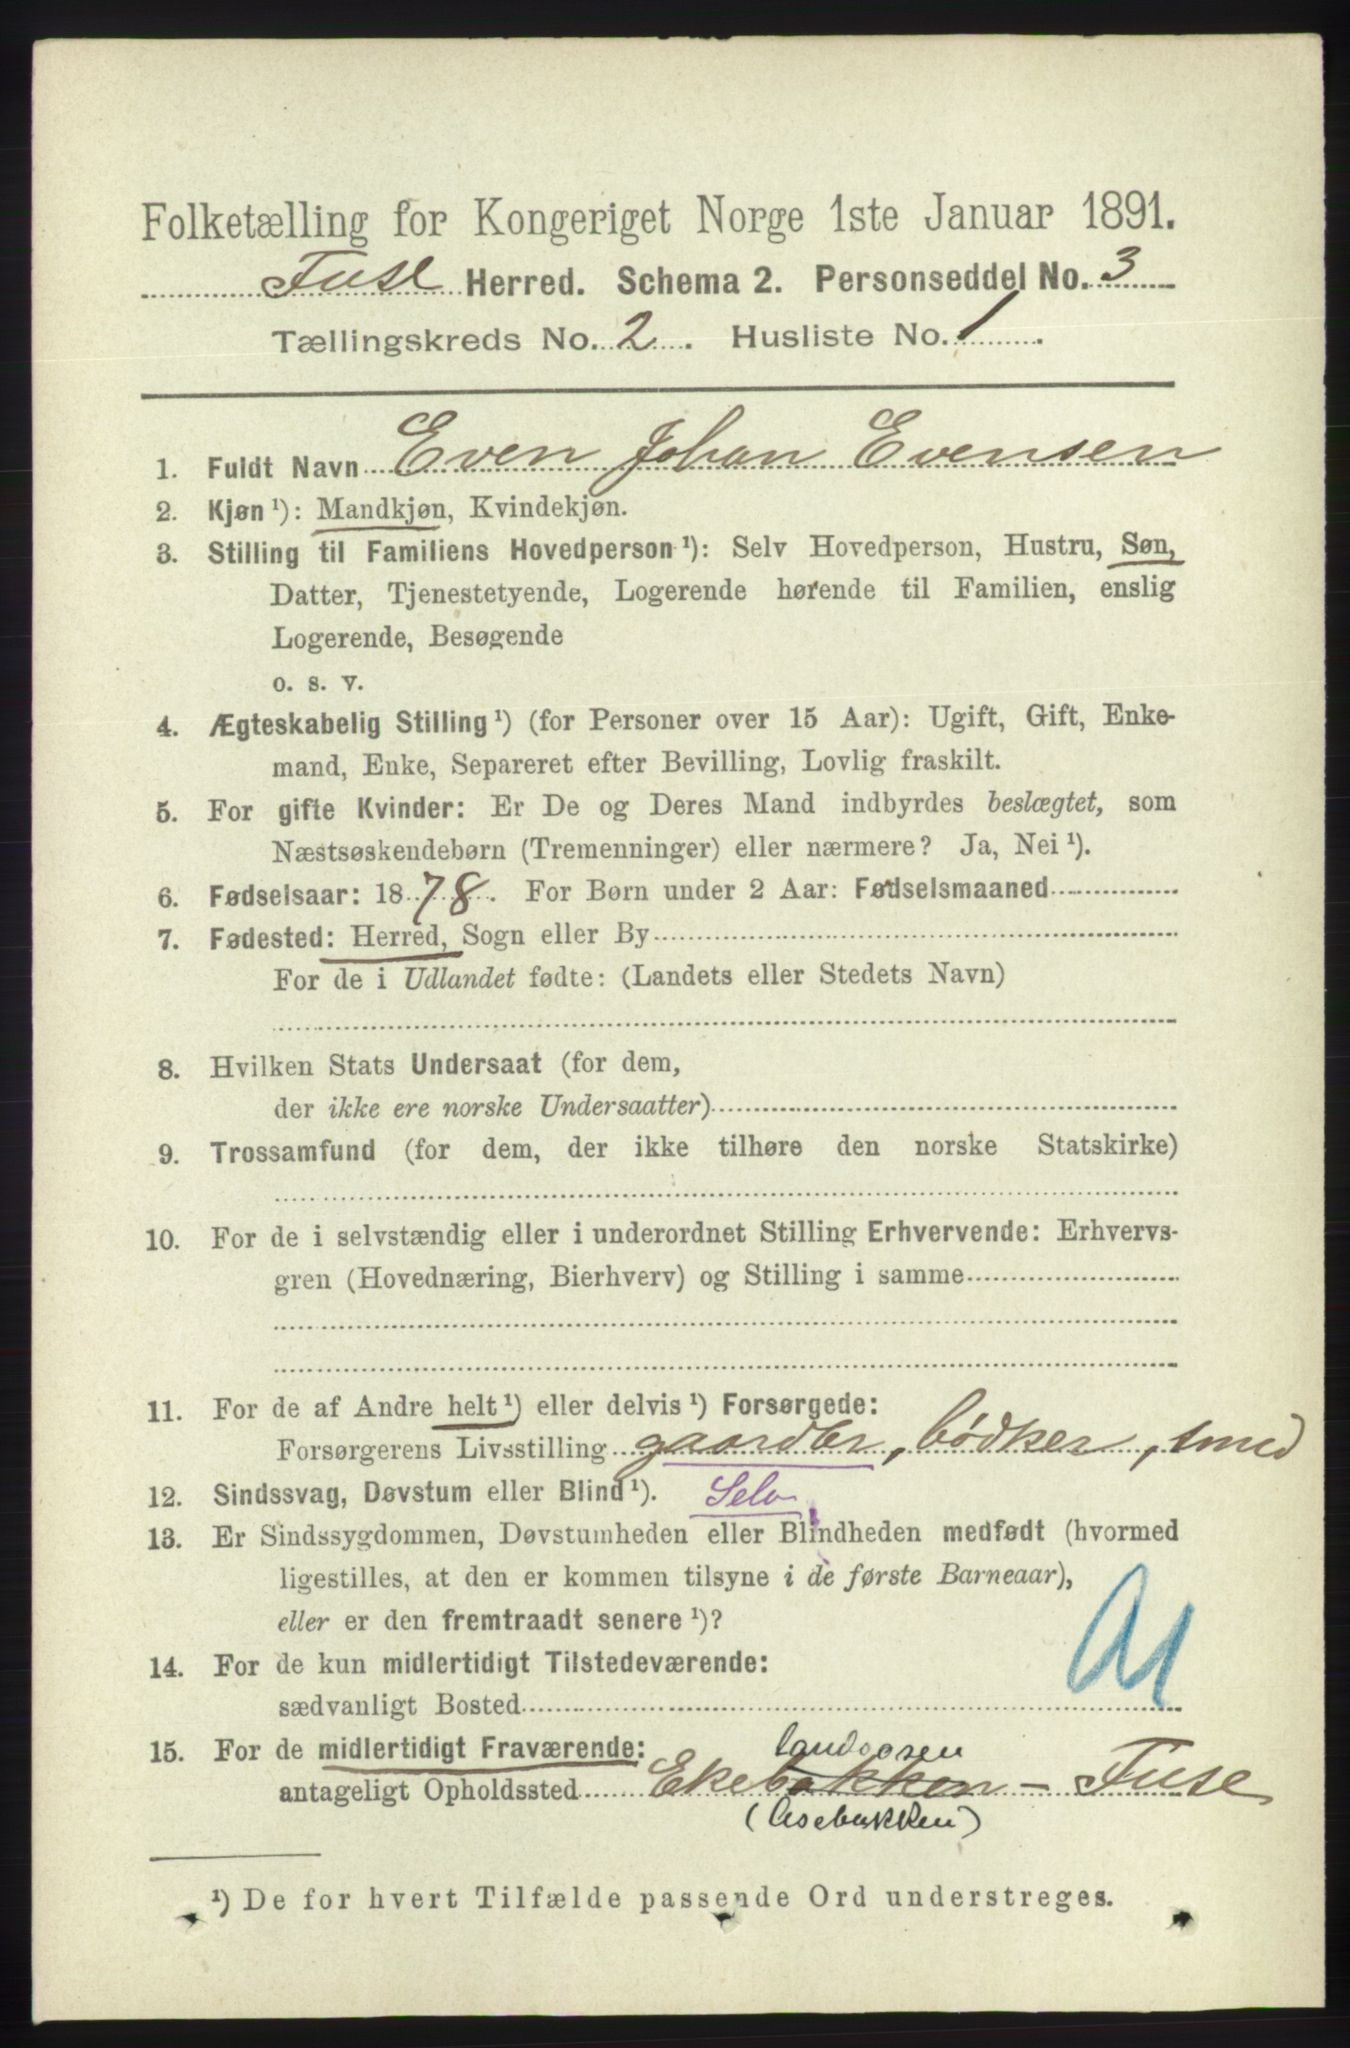 Folketælling for Kongeriget Norge 1ste Januar 1891.
Fuse Herred. Schema 2. Personseddel No. 3
Tællingskreds No. 2. Husliste No. 1.
1. Fuldt Navn Even Johan Evensen
2. Kjøn ¹): Mandkjøn, Kvindekjøn.
3. Stilling til Familiens Hovedperson ¹): Selv Hovedperson, Hustru, Søn,
Datter, Tjenestetyende, Logerende hørende til Familien, enslig
Logerende, Besøgende
o. s. v.
4. Ægteskabelig Stilling ¹) (for Personer over 15 Aar): Ugift, Gift, Enke-
mand, Enke, Separeret efter Bevilling, Lovlig fraskilt.
5. For gifte Kvinder: Er De og Deres Mand indbyrdes beslægtet, som
Næstsøskendebørn (Tremenninger) eller nærmere? Ja, Nei ¹).
6. Fødselsaar: 1878. For Børn under 2 Aar: Fødselsmaaned
7. Fødested: Herred, Sogn eller By
For de i Udlandet fødte: (Landets eller Stedets Navn)
8. Hvilken Stats Undersaat (for dem,
der ikke ere norske Undersaatter)
9. Trossamfund (for dem, der ikke tilhøre den norske Statskirke)
10. For de i selvstændig eller i underordnet Stilling Erhvervende: Erhvervs-
gren (Hovednæring, Bierhverv) og Stilling i samme
11. For de af Andre helt ¹) eller delvis ¹) Forsørgede:
Forsørgerens Livsstilling gaardbr, bödker, smed
12. Sindssvag, Døvstum eller Blind ¹). Selv
13. Er Sindssygdommen, Døvstumheden eller Blindheden medfødt (hvormed
ligestilles, at den er kommen tilsyne i de første Barneaar),
eller er den fremtraadt senere ¹)?
14. For de kun midlertidigt Tilstedeværende:
sædvanligt Bosted
15. For de midlertidigt Fraværende:
antageligt Opholdssted Ekebakken - Fuse
¹) De for hvert Tilfælde passende Ord understreges.